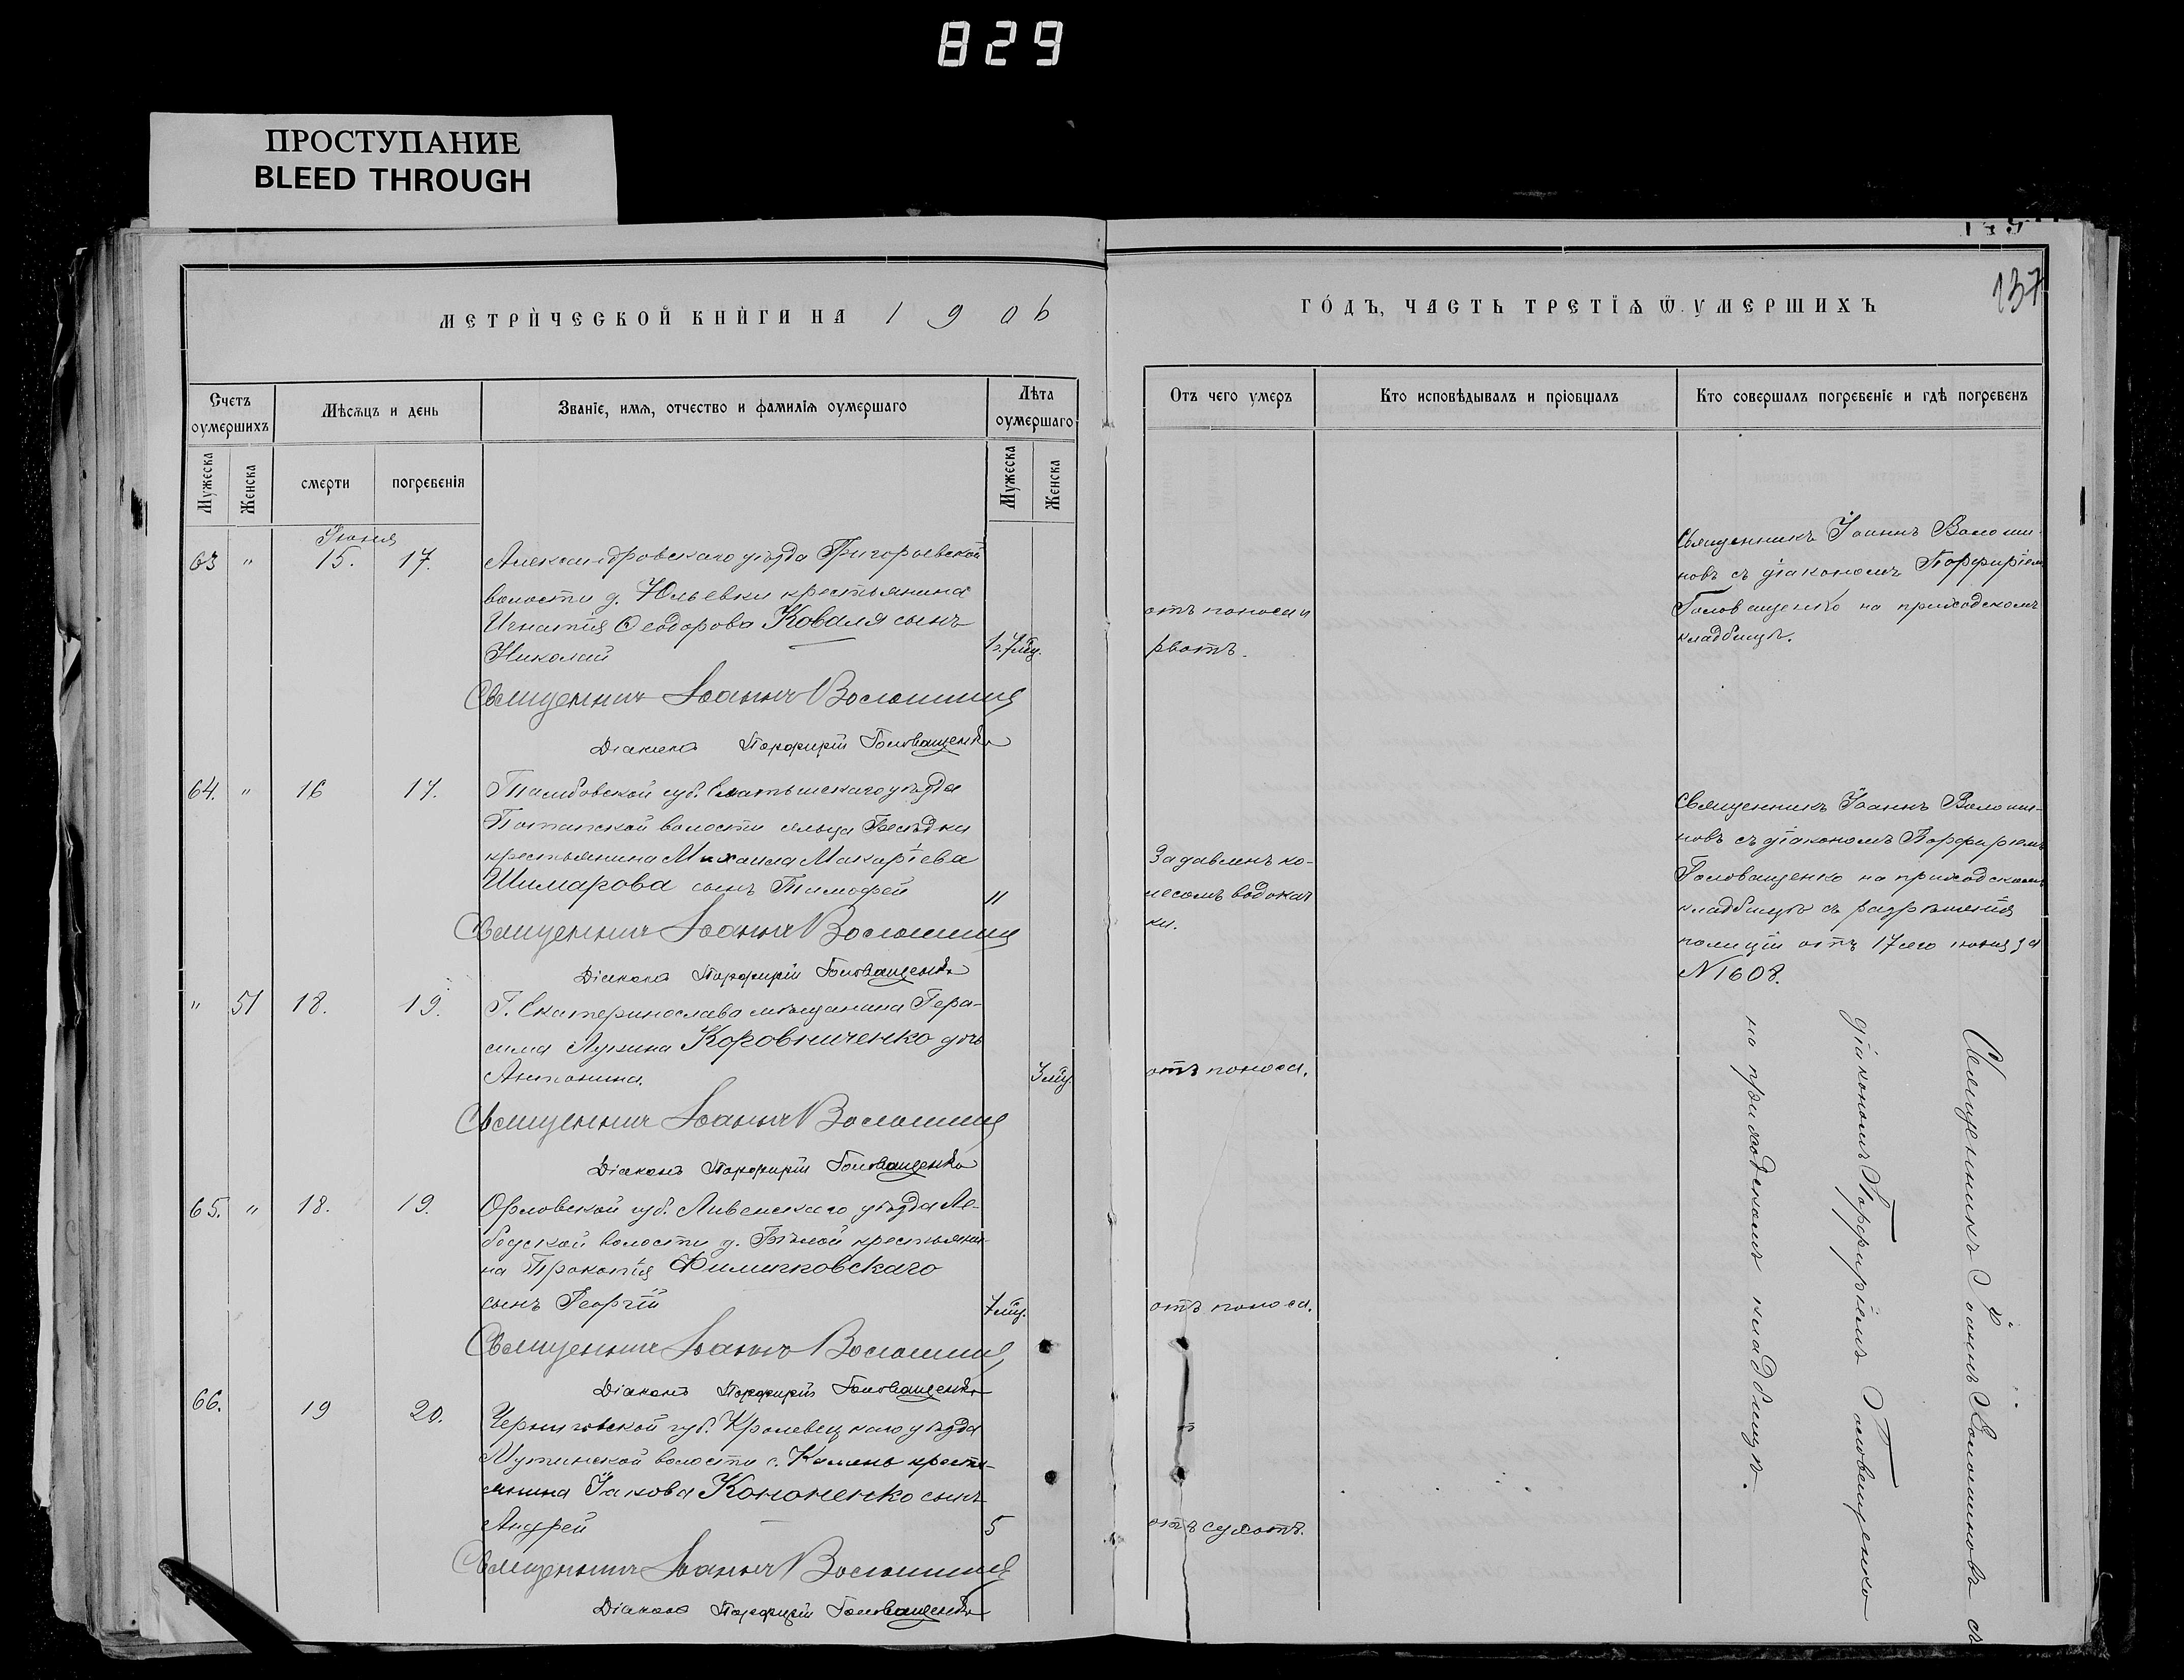 829
ПРОСТУПАНИЕ
BLEED THROUGH
137
МЕТРИЧЕСКОЙ КНИГИ НА 1906
ГОДЪ, ЧАСТЬ ТРЕТІЯ Ѿ УМЕРШИХЪ
Счетъ оумершихъ
Мѣсяцъ и день
Званіе, имя, отчество и фамилія оумершаго
Лѣта оумершаго
Отъ чего умеръ
Кто исповѣдывалъ и пріобщалъ
Кто совершалъ погребеніе и гдѣ погребенъ
Мужеска
Женска
смерти
погребенія
Мужеска
Женска
Іюня
63 " 15. 17.
Александровскаго уѣзда Григорьевской
волости д. Юльевки крестьянина
Игнатія Ѳеодорова Коваля сынъ
Николай
1г. 7 мц.
отъ поноса и
рвотъ.
Священникъ Іоаннъ Волоши-
новъ съ діакономъ Порфиріемъ
Головащенко на приходскомъ
кладбищѣ.
Священникъ Іоаннъ Волошинъ
Діаконъ Порфирій Головащенко
64. " 16 17.
Тамбовской губ. Елатьмскаго уѣзда
волости сельца Бесѣдки
крестьянина Михаила Макаріева
Шимарова сынъ Тимофей
11
Задавленъ ко-
лесомъ водокач
ки.
Священникъ Іоаннъ Волоши-
новъ съ діакономъ Порфиріемъ
Головащенко на приходскомъ
кладбищѣ съ разрѣшенія
полиціи отъ 17 сего іюня за
N 1608.
Священникъ Іоаннъ Волошинъ
Діаконъ Порфирій Головащенко
" 51 18. 19.
Г. Екатеринослава мѣщанина Гера-
сима Лукина Коровниченко дочь
Антонина.
7 мц.
отъ поноса.
Священникъ Іоаннъ Волошинъ
Діаконъ Порфирій Головащенко
65. " 18. 19.
Орловской губ. Ливенскаго уѣзда Ле-
бедской волости д. Бѣлой крестьяни-
на Прокопія Филипповскаго
сынъ Георгій
7 мц.
отъ поноса.
Священникъ Іоаннъ Волошинъ
Діаконъ Порфирій Головащенко
66. 19 20.
Черниговской губ. Кролевецкаго уѣзда
Мутинской волости с. Камень кресть-
янина Іакова Кононенко сынъ
Андрей
5
отъ сухотъ.
Священникъ Іоаннъ Волошинъ
Діаконъ Порфирій Головащенко
Священникъ Іоаннъ Волошиновъ съ
діакономъ Порфиріемъ Головащенко
на приходскомъ кладбищѣ.